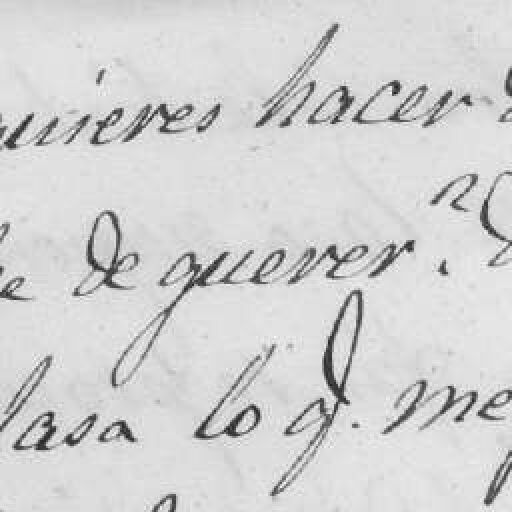 quieres hacer
he de querer?
lasa lo q.